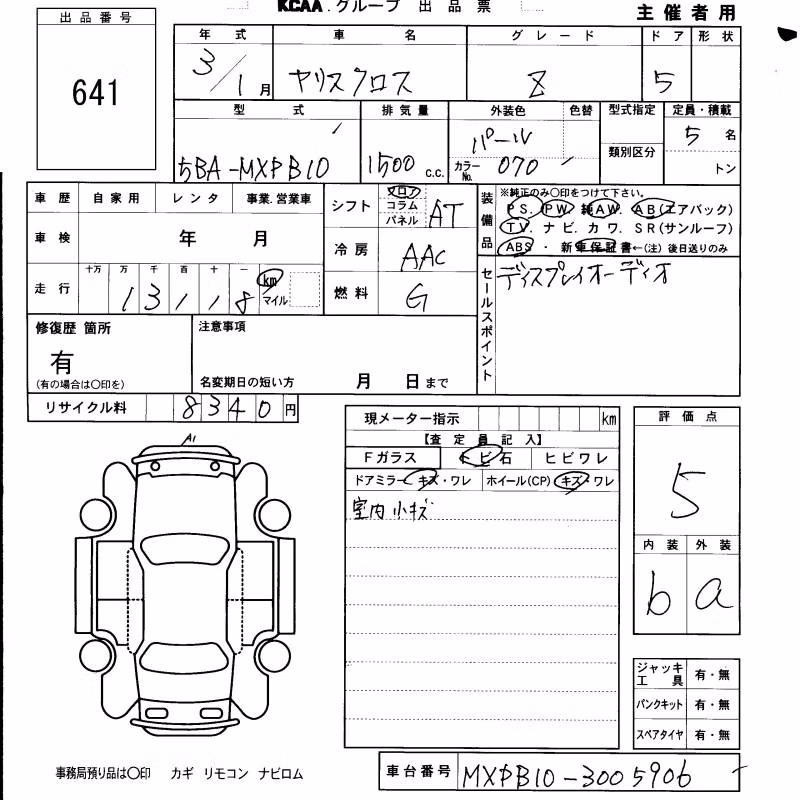 KCAA. グループ 出品票
主催者用
出品番号
641
年式 車名 グレード ドア 形状
3/1月 ヤリスクロス Z 5
型式 排気量 外装色 色替 型式指定 定員・積載
5BA-MXPB10 1500 c.c. パール
カラーNo. 070
類別区分
5名
トン
車歴 自家用 レンタ 事業.営業車
車検 年 月
走行 十万 万 千 百 十 一
13118 km
マイル
シフト フロア コラム パネル AT
冷房 AAC
燃料 G
装備品
※純正のみ〇印をつけて下さい。
PS. PW. 純AW. AB(エアバック)
TV. ナビ. カワ. SR(サンルーフ)
ABS ・ 新車保証書←(注)後日送りのみ
セールスポイント
ディスプレイオーディオ
修復歴 箇所
有
(有の場合は〇印を)
注意事項
名変期日の短い方 月 日まで
リサイクル料 8340円
現メーター指示 km
【査定員記入】
Fガラス トビ石 ヒビワレ
ドアミラー キズ・ワレ ホイール(CP) キズ・ワレ
室内小キズ
評価点
5
内装 外装
b a
A1
ジャッキ工具 有・無
パンクキット 有・無
スペアタイヤ 有・無
事務局預り品は〇印 カギ リモコン ナビロム
車台番号 MXPB10-3005906